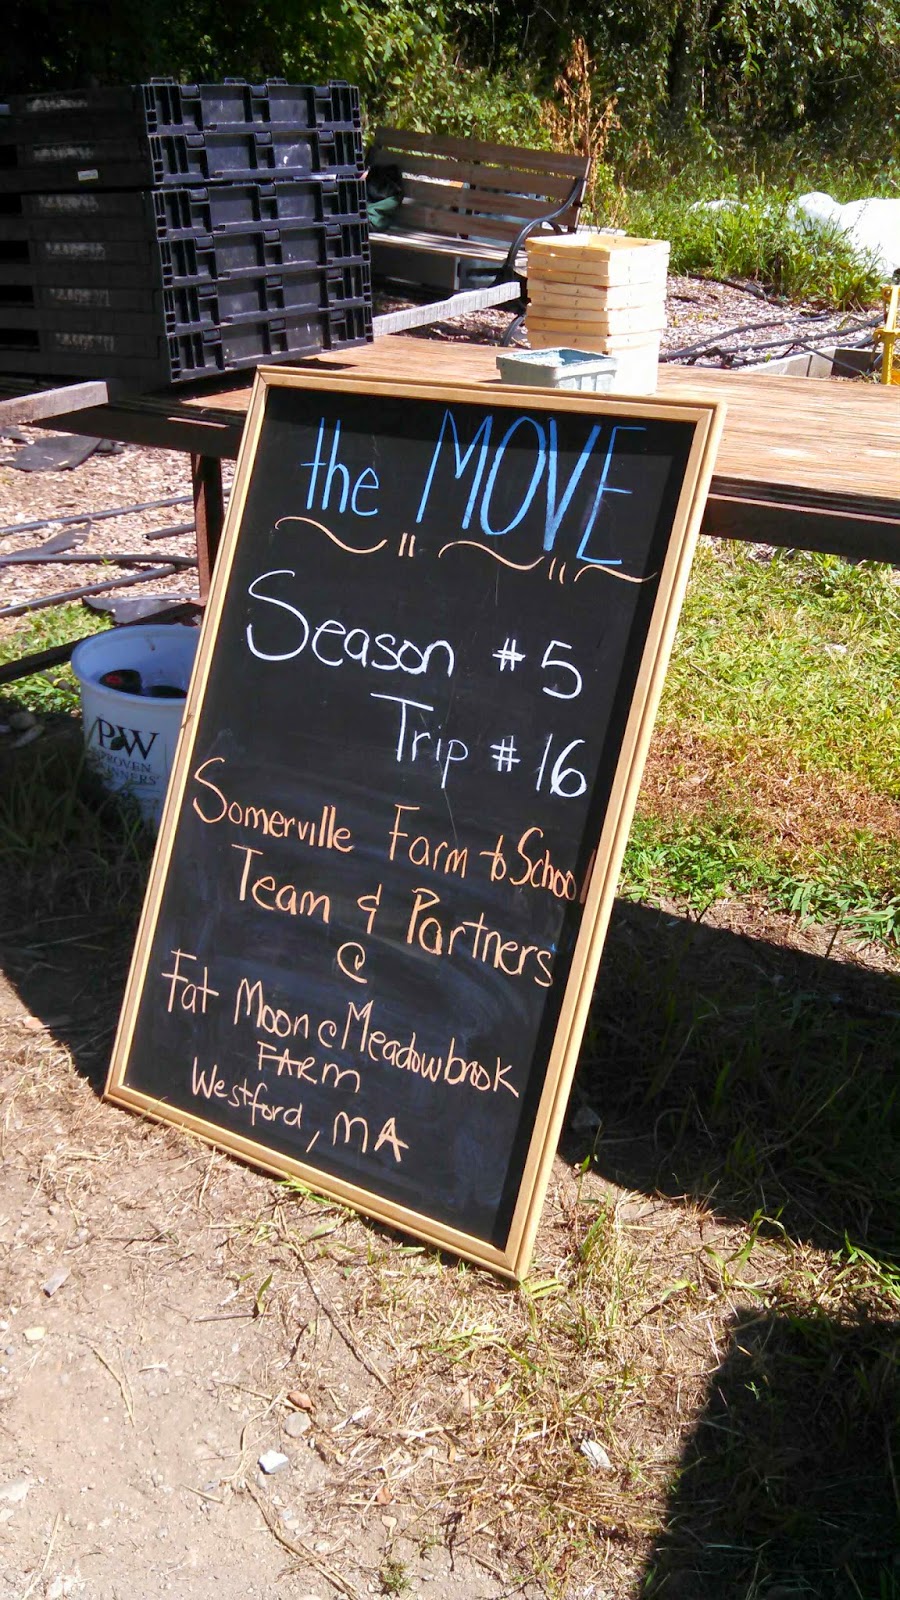 the MOVE
Season #5
Trip #16
Somerville Farm to School
Team & Partners
@
Fat Moon @ Meadowbrook
FARM
Westford, MA
PW
PROVEN
WINNERS